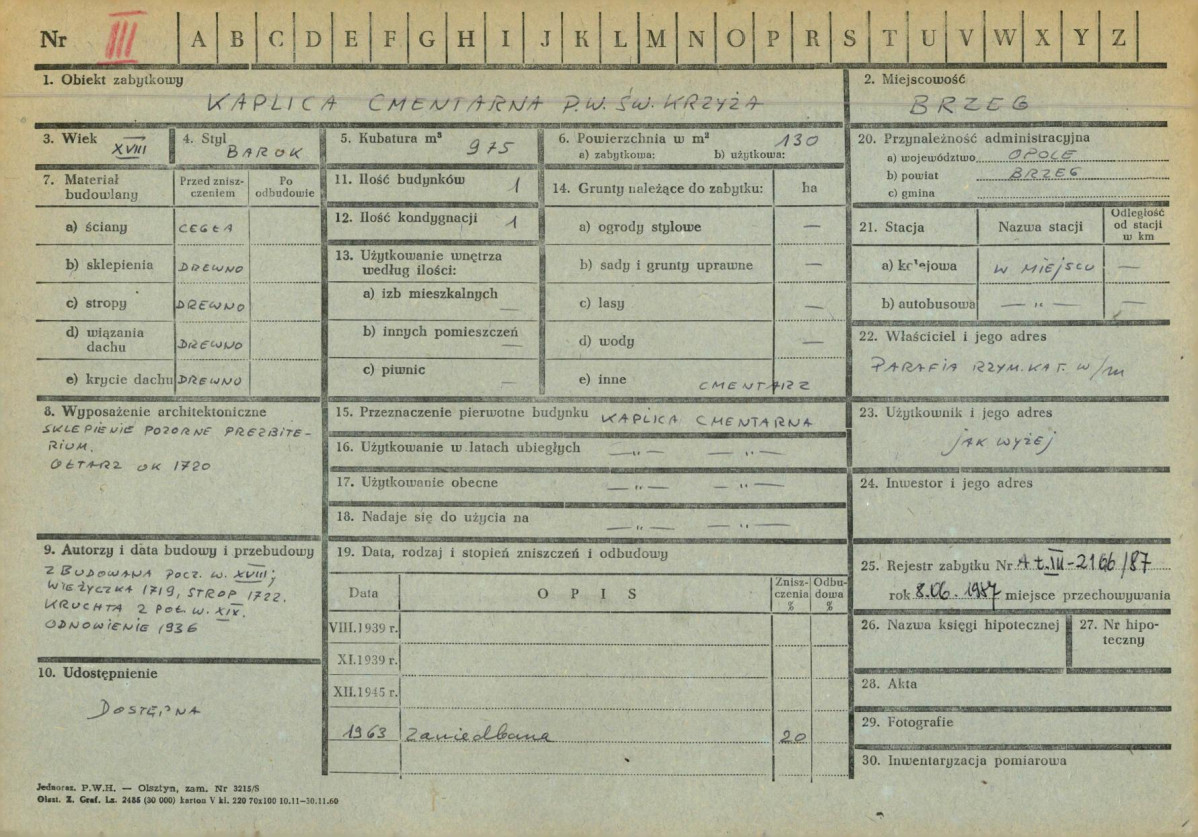 Nr III A B C D E F G H I J K L M N O P R S T U V W X Y Z
1. Obiekt zabytkowy
KAPLICA CMENTARNA P.W. ŚW. KRZYŻA
2. Miejscowość
BRZEG
3. Wiek XVIII
4. Styl BAROK
5. Kubatura m³ 975
6. Powierzchnia w m² 130
a) zabytkowa: b) użytkowa:
20. Przynależność administracyjna
a) województwo OPOLE
b) powiat BRZEG
c) gmina
7. Materiał budowlany
Przed zniszczeniem
Po odbudowie
a) ściany CEGŁA
b) sklepienia DREWNO
c) stropy DREWNO
d) wiązania dachu DREWNO
e) krycie dachu DREWNO
11. Ilość budynków 1
12. Ilość kondygnacji 1
13. Użytkowanie wnętrza według ilości:
a) izb mieszkalnych —
b) innych pomieszczeń —
c) piwnic —
14. Grunty należące do zabytku: ha
a) ogrody stylowe —
b) sady i grunty uprawne —
c) lasy —
d) wody —
e) inne CMENTARZ
21. Stacja Nazwa stacji Odległość od stacji w km
a) kolejowa W MIEJSCU —
b) autobusowa — „ — —
22. Właściciel i jego adres
PARAFIA RZYM. KAT. W/M
8. Wyposażenie architektoniczne
SKLEPIENIE POZORNE PREZBITE-
RIUM.
OŁTARZ OK 1720
15. Przeznaczenie pierwotne budynku KAPLICA CMENTARNA
16. Użytkowanie w latach ubiegłych — „ — — „ —
17. Użytkowanie obecne — „ — — „ —
18. Nadaje się do użycia na — „ — — „ —
23. Użytkownik i jego adres
JAK WYŻEJ
24. Inwestor i jego adres
9. Autorzy i data budowy i przebudowy
ZBUDOWANA POCZ. W. XVIII;
WIEŻYCZKA 1719, STROP 1722.
KRUCHTA 2 POŁ. W. XIX.
ODNOWIENIE 1936
10. Udostępnienie
DOSTĘPNA
19. Data, rodzaj i stopień zniszczeń i odbudowy
Data OPIS Zniszczenia % Odbudowa %
VIII.1939 r.
XI.1939 r.
XII.1945 r.
1963 Zaniedbana 20
25. Rejestr zabytku Nr At.III-2166/87
rok 8.06.1987 miejsce przechowywania
26. Nazwa księgi hipotecznej
27. Nr hipoteczny
28. Akta
29. Fotografie
30. Inwentaryzacja pomiarowa
Jednoraz. P.W.H. — Olsztyn, zam. Nr 3215/S
Olszt. Z. Graf. Lz. 2486 (30 000) karton V kl. 220 70x100 10.11—30.11.60